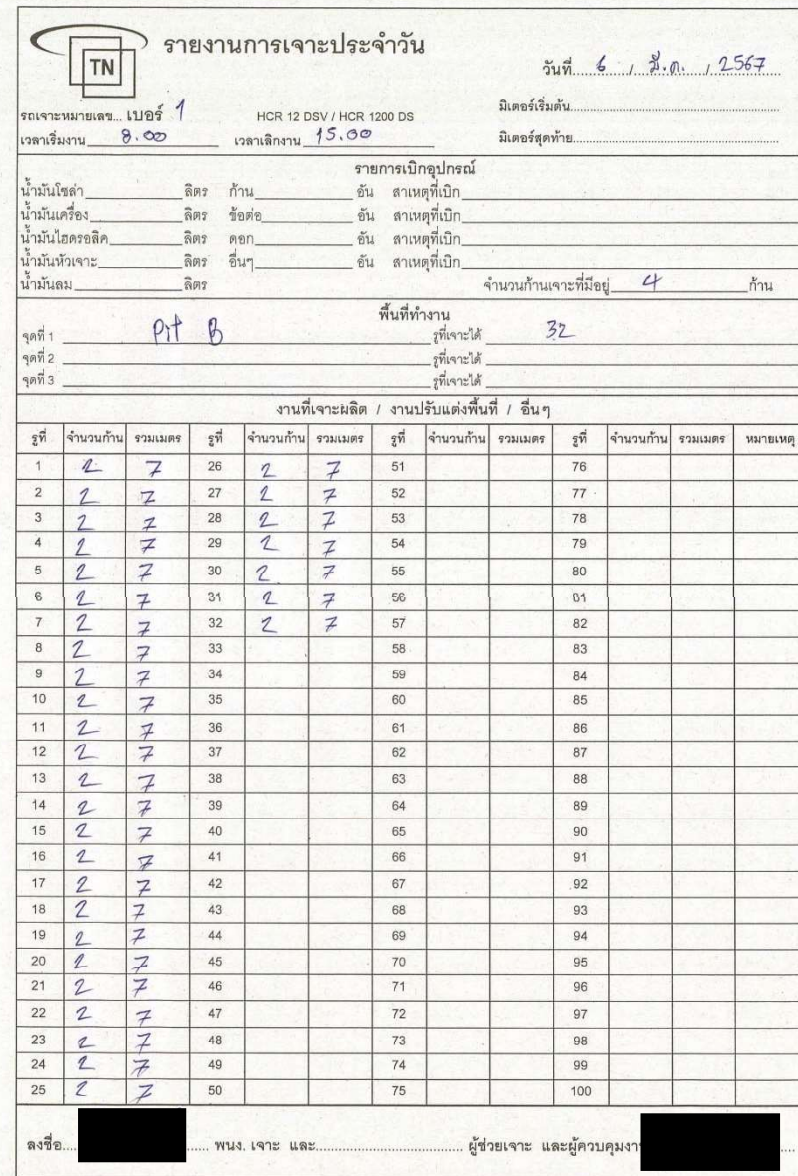 TN
รายงานการเจาะประจำวัน
วันที่ 6 / มี.ค. / 2567
รถเจาะหมายเลข... เบอร์ 1 HCR 12 DSV / HCR 1200 DS มิเตอร์เริ่มต้น
เวลาเริ่มงาน 8.00 เวลาเลิกงาน 15.00 มิเตอร์สุดท้าย
รายการเบิกอุปกรณ์
น้ำมันโซล่า ลิตร ก้าน อัน สาเหตุที่เบิก
น้ำมันเครื่อง ลิตร ข้อต่อ อัน สาเหตุที่เบิก
น้ำมันไฮดรอลิค ลิตร ดอก อัน สาเหตุที่เบิก
น้ำมันหัวเจาะ ลิตร อื่นๆ อัน สาเหตุที่เบิก
น้ำมันลม ลิตร จำนวนก้านเจาะที่มีอยู่ 4 ก้าน
พื้นที่ทำงาน
จุดที่ 1 Pit B รูที่เจาะได้ 32
จุดที่ 2 รูที่เจาะได้
จุดที่ 3 รูที่เจาะได้
งานที่เจาะผลิต / งานปรับแต่งพื้นที่ / อื่นๆ
รูที่ จำนวนก้าน รวมเมตร รูที่ จำนวนก้าน รวมเมตร รูที่ จำนวนก้าน รวมเมตร รูที่ จำนวนก้าน รวมเมตร หมายเหตุ
1 2 7 26 2 7 51 76
2 2 7 27 2 7 52 77
3 2 7 28 2 7 53 78
4 2 7 29 2 7 54 79
5 2 7 30 2 7 55 80
6 2 7 31 2 7 56 81
7 2 7 32 2 7 57 82
8 2 7 33 58 83
9 2 7 34 59 84
10 2 7 35 60 85
11 2 7 36 61 86
12 2 7 37 62 87
13 2 7 38 63 88
14 2 7 39 64 89
15 2 7 40 65 90
16 2 7 41 66 91
17 2 7 42 67 92
18 2 7 43 68 93
19 2 7 44 69 94
20 2 7 45 70 95
21 2 7 46 71 96
22 2 7 47 72 97
23 2 7 48 73 98
24 2 7 49 74 99
25 2 7 50 75 100
ลงชื่อ พนง. เจาะ และ ผู้ช่วยเจาะ และผู้ควบคุมงา